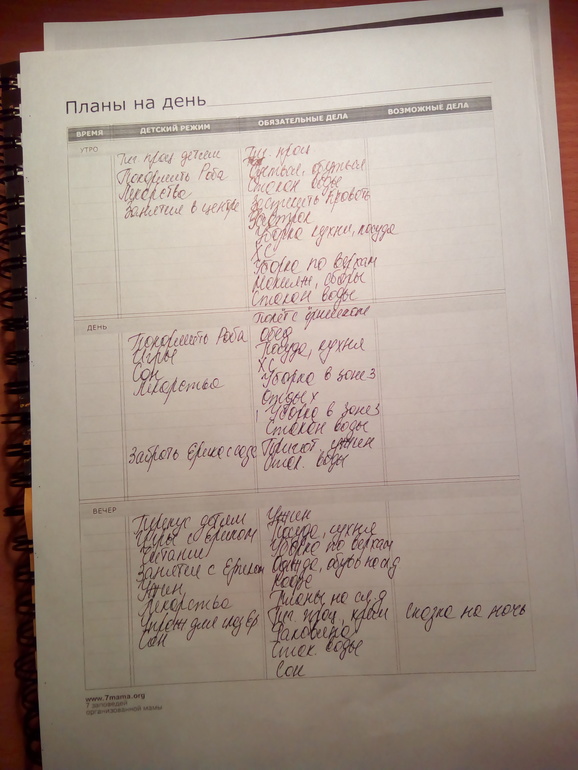 Планы на день
ВРЕМЯ ДЕТСКИЙ РЕЖИМ ОБЯЗАТЕЛЬНЫЕ ДЕЛА ВОЗМОЖНЫЕ ДЕЛА
УТРО
Гиг. проц детям
Покормить Роба
Лекарства
Занятия в центре
Гиг. проц
Одеться, обуться
Стакан воды
Застелить кровать
Завтрак
Уборка кухни, посуда
ХС
Уборка по верхам
Макияж, сборы
Стакан воды
ДЕНЬ
Покормить Роба
Игры
Сон
Лекарства
Забрать Ерика с сада
Полёт с
обед
Посуда, кухня
ХС
Уборка в зоне 3
Отдых
Уборка в зоне 3
Стакан воды
Пригот. ужин
Стак. воды
ВЕЧЕР
Перекус детям
Игры с Ериком
Читание
Занятия с Ериком
Ужин
Лекарства
Сон
Ужин
Посуда, кухня
Уборка по верхам
Одежда, обувь на сл д
Кофе
Планы на сл. д
Гиг. проц, крем
Стак. воды
Сон
Сказка на ночь
www.7mama.org
7 заповедей
организованной мамы